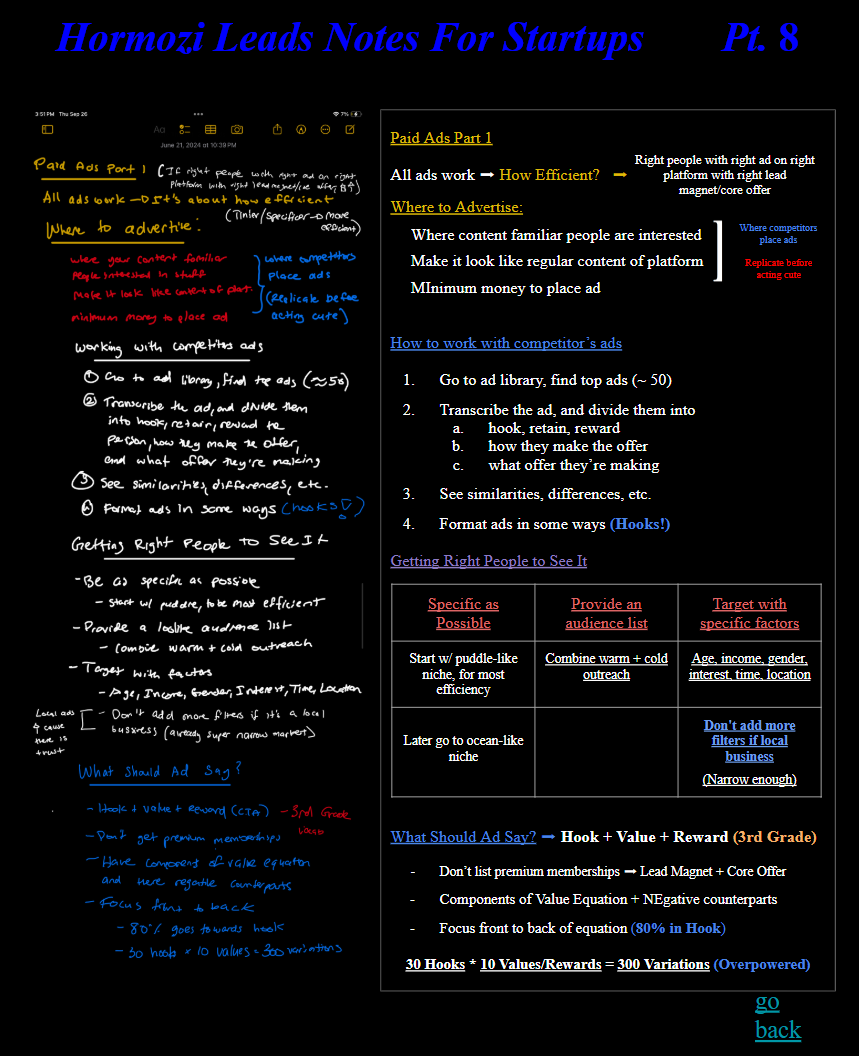 Hormozi Leads Notes For Startups Pt. 8
3:51 PM Thu Sep 26
7%
Aa
June 21, 2024 at 10:39 PM
Paid Ads Part 1 (If right people with right ad on right
platform with right lead magnet/core offer,
All ads work → It's about how efficient
(Tinier/specificer → more
efficient)
Where to advertise:
where your content familiar
people interested in stuff
Make it look like content of plat.
minimum money to place ad
where competitors
place ads
(Replicate before
acting cute)
Working with competitors ads
① Go to ad library, find top ads (≈50)
② Transcribe the ad, and divide them
into hook, retain, reward the
person, how they make the offer,
and what offer they're making
③ See similarities, differences, etc.
④ Format ads in some ways (hooks!)
Getting Right People to See It
- Be as specific as possible
- Start w/ puddle, to be most efficient
- Provide a audience list
- Combine warm + cold outreach
- Target with factors
- Age, Income, Gender, Interest, Time, Location
- Don't add more filters if it's a local
business (already super narrow market)
Local ads
↑ cause
there is
trust
What Should Ad Say?
- Hook + Value + Reward (CTA) - 3rd Grade
- Don't get premium memberships
- Have component of value equation
and there negative counterparts
- Focus front to back
- 80% goes towards hook
- 30 hooks × 10 values = 300 variations
Paid Ads Part 1
All ads work → How Efficient? →
Right people with right ad on right
platform with right lead
magnet/core offer
Where to Advertise:
Where content familiar people are interested
Make it look like regular content of platform
MInimum money to place ad
Where competitors
place ads
Replicate before
acting cute
How to work with competitor's ads
1. Go to ad library, find top ads (~ 50)
2. Transcribe the ad, and divide them into
a. hook, retain, reward
b. how they make the offer
c. what offer they're making
3. See similarities, differences, etc.
4. Format ads in some ways (Hooks!)
Getting Right People to See It
Specific as
Possible
Provide an
audience list
Target with
specific factors
Start w/ puddle-like
niche, for most
efficiency
Combine warm + cold
outreach
Age, income, gender,
interest, time, location
Later go to ocean-like
niche
Don't add more
filters if local
business
(Narrow enough)
What Should Ad Say? → Hook + Value + Reward (3rd Grade)
- Don't list premium memberships → Lead Magnet + Core Offer
- Components of Value Equation + NEgative counterparts
- Focus front to back of equation (80% in Hook)
30 Hooks * 10 Values/Rewards = 300 Variations (Overpowered)
go
back